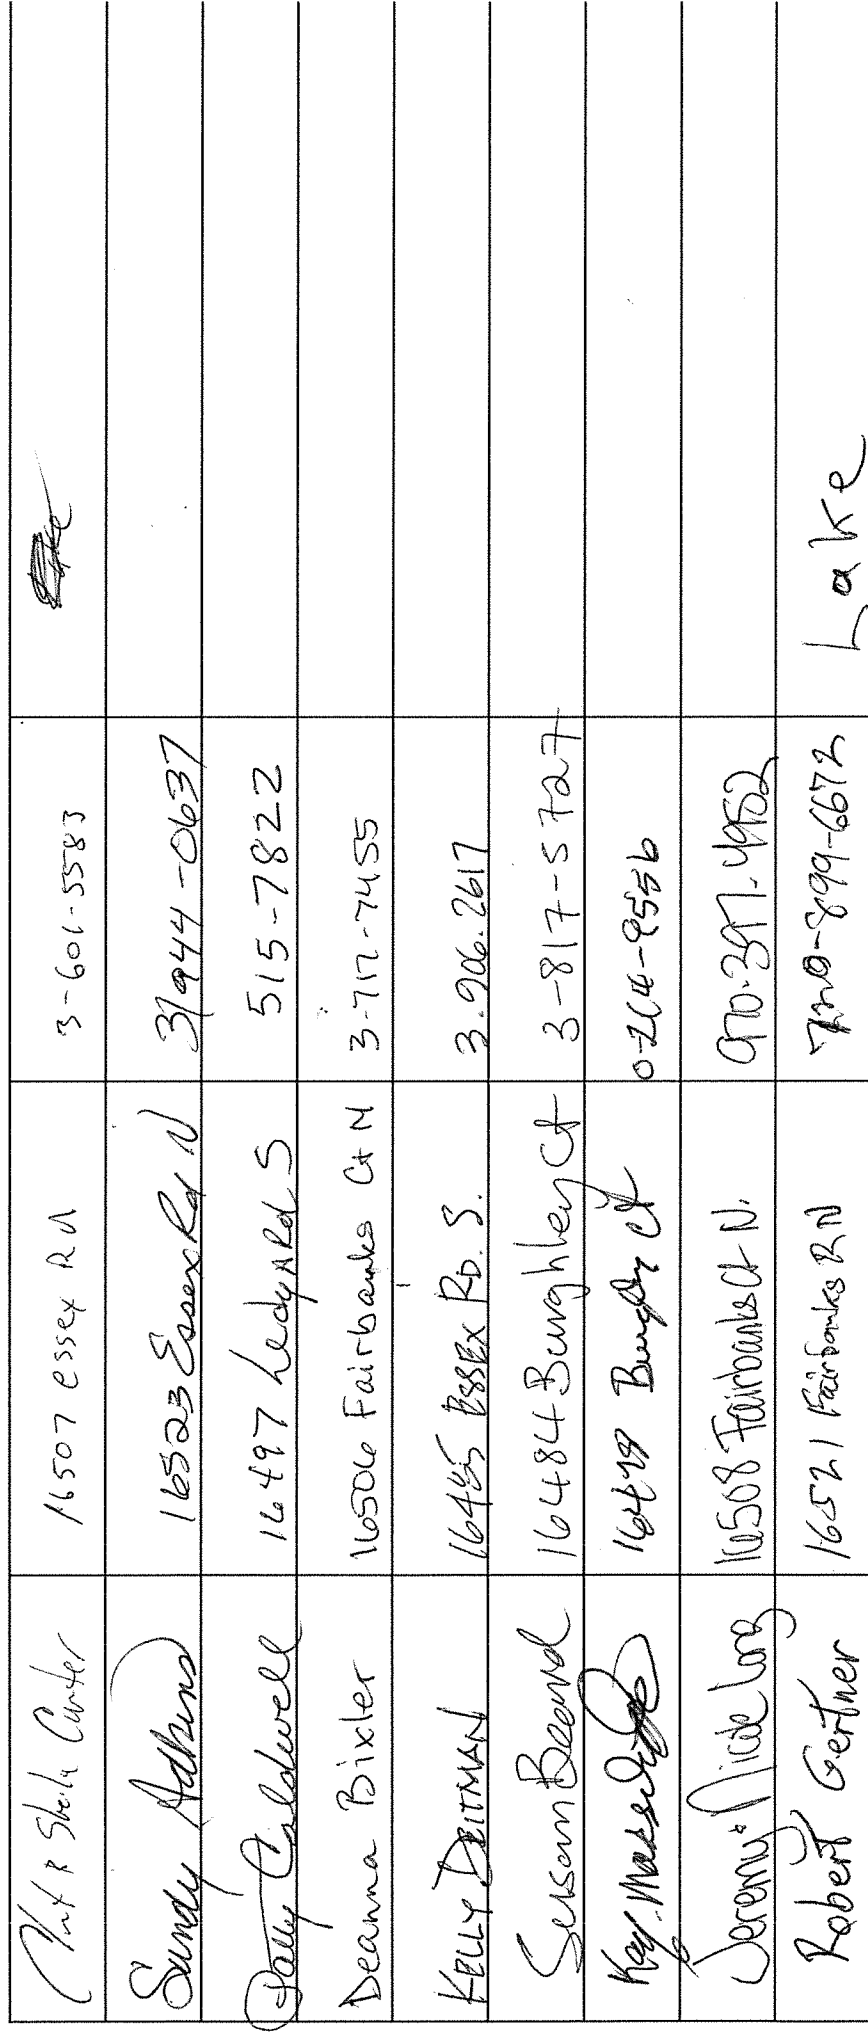 Clint & Sheila Carter 16507 Essex Rd 3-601-5583
Sandy Adkins 16523 Essex Rd N 3/944-0637
Patty Caldwell 16497 Ledyard S 515-7822
Deanna Bixler 16506 Fairbanks Ct N 3-717-7455
KELLY DEITMAN 16485 ESSEX RD. S. 3.906.2617
Susan Beard 16484 Burghley Ct 3-817-5727
Kay Ct
Jeremy & Nicole Long 16508 Fairbanks Ct N. 970.397.4952
Robert Gertner 16521 Fairbanks R N 720-899-6672 Lake